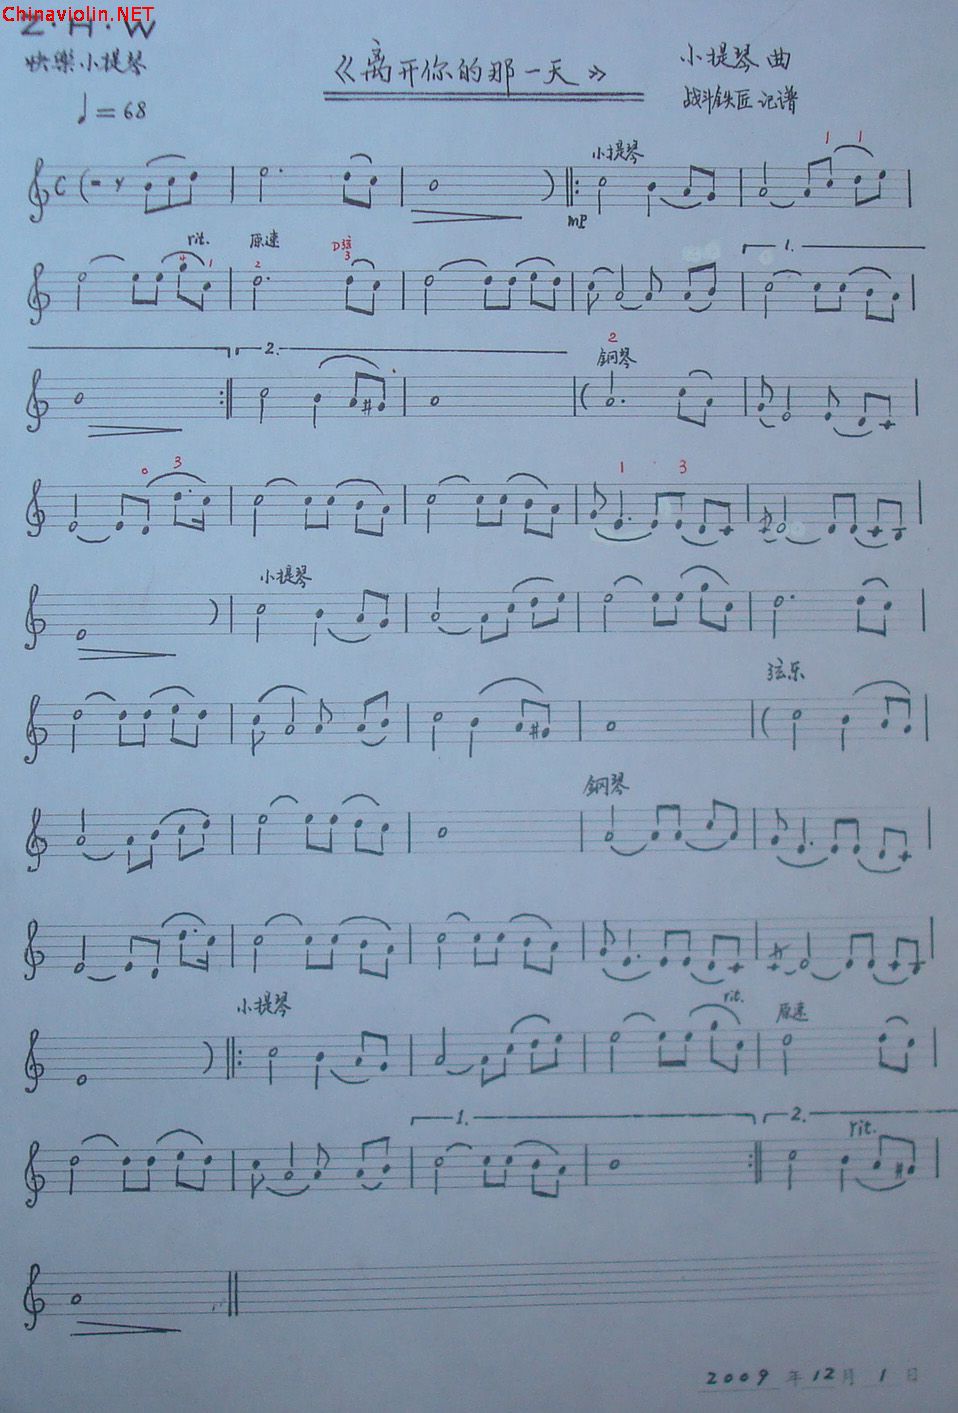 Chinaviolin.NET
Z·H·W
快樂小提琴
《离开你的那一天》
小提琴曲
♩=68
战斗铁匠记谱
小提琴
1 1
mp
rit.
原速
D弦
3
4 1 2
1.
2.
2
鋼琴
0 3
1 3
小提琴
弦乐
鋼琴
小提琴
rit.
原速
1.
2.
rit.
2009年12月1日